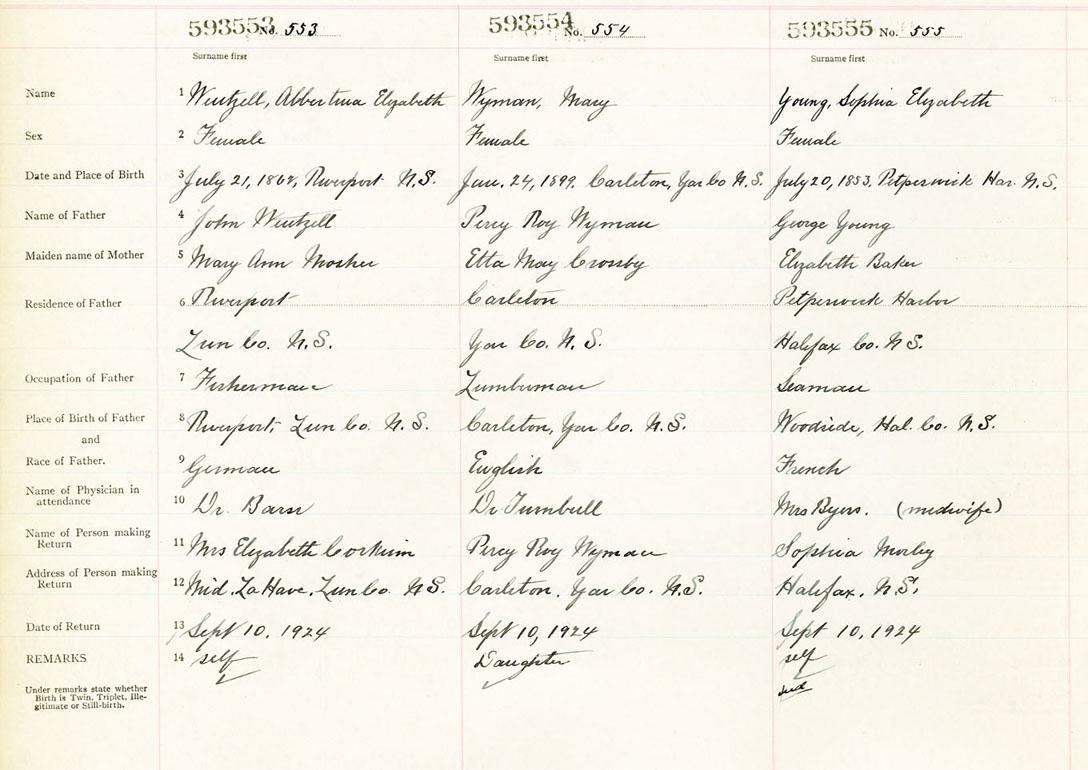 593553 No. 553 593554 No. 554 593555 No. 555
Surname first Surname first Surname first
Name 1 Wentzell, Abbertina Elizabeth Wyman, Mary Young, Sophia Elizabeth
Sex 2 Female Female Female
Date and Place of Birth 3 July 21, 1868, Riverport N.S. Jan. 24, 1899. Carleton, Yar Co N.S. July 20, 1853, Petperswick Har. N.S.
Name of Father 4 John Wentzell Percy Roy Wyman George Young
Maiden name of Mother 5 Mary Ann Mosher Etta May Crossby Elizabeth Baker
Residence of Father 6 Riverport Carleton Petperswick Harbor
Lun Co. N.S. Yar Co. N.S. Halifax Co. N.S.
Occupation of Father 7 Fisherman Lumberman Seaman
Place of Birth of Father 8 Riverport, Lun Co. N.S. Carleton, Yar Co. N.S. Woodside, Hal. Co. N.S.
and
Race of Father. 9 German English French
Name of Physician in
attendance 10 Dr. Barss Dr. Turnbull Mrs Byers. (midwife)
Name of Person making
Return 11 Mrs Elizabeth Corkum Percy Roy Wyman Sophia Morley
Address of Person making
Return 12 Mid. LaHave, Lun Co. N.S. Carleton, Yar Co. N.S. Halifax, N.S.
Date of Return 13 Sept 10, 1924 Sept 10, 1924 Sept 10, 1924
REMARKS 14 self Daughter self
Under remarks state whether
Birth is Twin, Triplet, Ille-
gitimate or Still-birth.